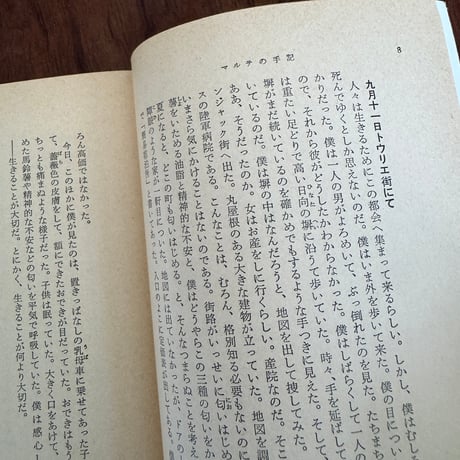 マルテの手記
8
九月十一日トウリエ街にて
人々は生きるためにこの都会へ集まって来るらしい。しかし、僕はむし
死んでゆくとしか思えないのだ。僕はいま外を歩いて来た。僕の目につい
かりだった。僕は一人の男がよろめいて、ぶっ倒れたのを見た。たちまち
ので、それから彼がどうしたかわからなかった。僕はしばらくして一人の
は重たい足どりで高い日向の塀に沿うて歩いていた。時々、手を延ばして
塀がまだ続いているのを確かめでもするような手つきに見えた。そして、
いているのだ。僕は塀の中はなんだろうと、地図を出して捜してみた。
そう、あそうだったのか。女はお産をしに行くらしい。産院なのだ。そこ
ンジャック街へ出た。丸屋根のある大きな建物が立っていた。地図を調
スの陸軍病院である。こんなことは、むろん、格別知る必要もないのに
いまさら気にかけることはないのである。街路がいっせいに匂いはじめ
薯をいためる油脂と精神的な不安と、僕はどうやらこの三種の匂いをか
夏になると、どこの町も匂いはじめる。と、そんなつまらぬことを考え
のような家が一軒目についた。地図には出ていなかったが、ドアの
と書いてあった。入口のよこに定価表が出してあ
ろん高価ではなかった。
今日、このほかに僕が見たのは、置きっぱなしの乳母車に乗せてあった子
て、薔薇色の皮膚をして、額にできたおできが目だっていた。おできはもう
ちっとも痛まぬような様子だった。子供は眠っていた。大きく口をあけて、
めた馬鈴薯や精神的な不安などの匂いを平気で呼吸していた。僕は感心し
――生きることが大切だ。とにかく、生きることが何より大切だ。